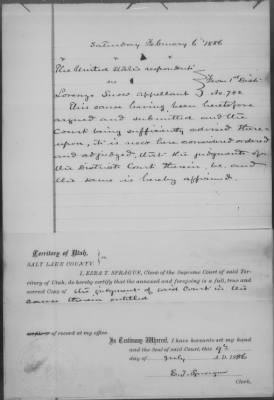 Saturday February 6th 1886
The United States respondent
vs
From 1st Dist.
Lorenzo Snow appellant No. 742
This cause having been heretofore
argued and submitted and the
Court being sufficiently advised there-
upon, it is now here considered ordered
and adjudged, that the judgment of
the District Court therein be, and
the same is hereby affirmed.
Territory of Utah,
SALT LAKE COUNTY.
I, EZRA T. SPRAGUE, Clerk of the Supreme Court of said Ter-
ritory of Utah, do hereby certify that the annexed and foregoing is a full, true and
correct Copy of the judgment of said Court in the
cause therein entitled
of record at my office.
In Testimony Whereof, I have hereunto set my hand
and the Seal of said Court, this 9th
day of July A. D. 1886
E. T. Sprague
Clerk.